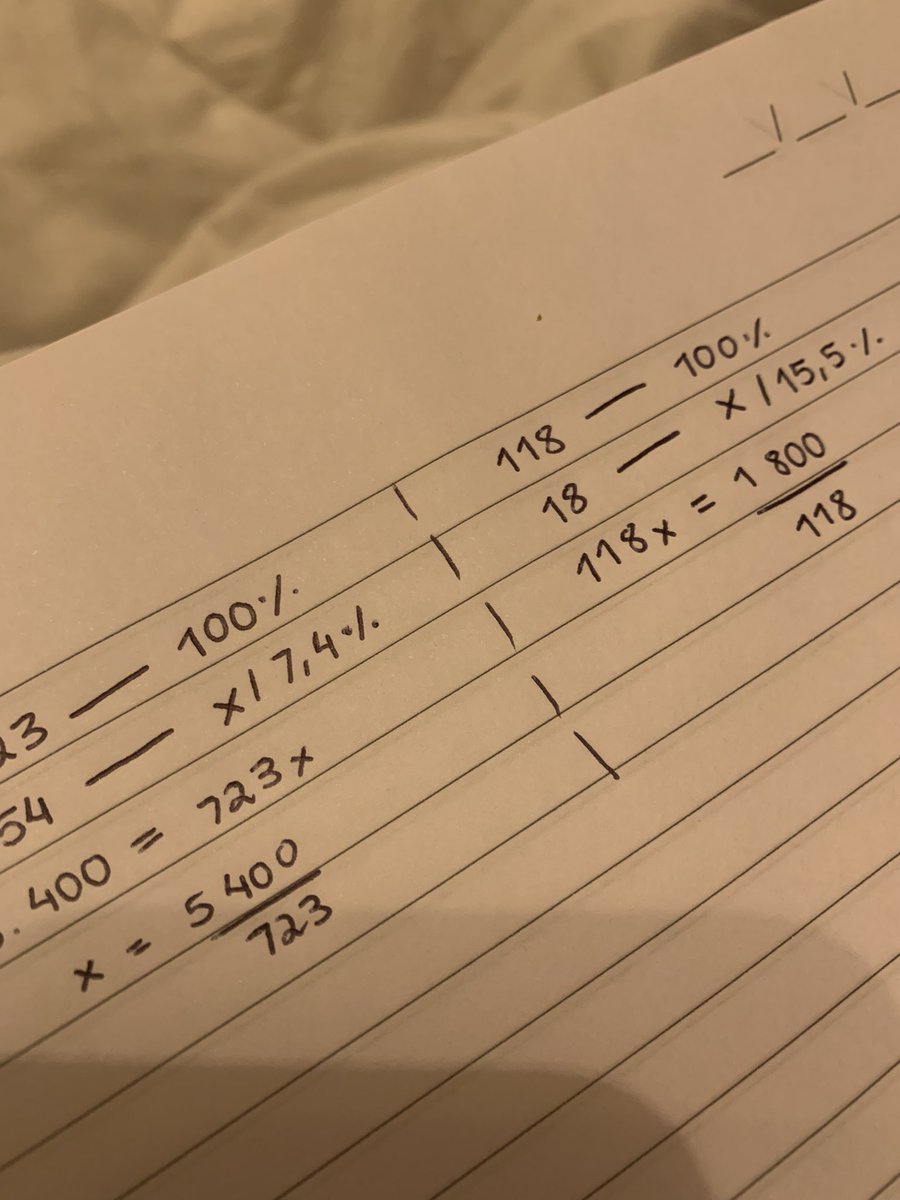 23 — 100%
54 — x / 7,4%
. 400 = 723x
x = 5 400
723
118 — 100%
18 — x / 15,5%
118x = 1 800
118